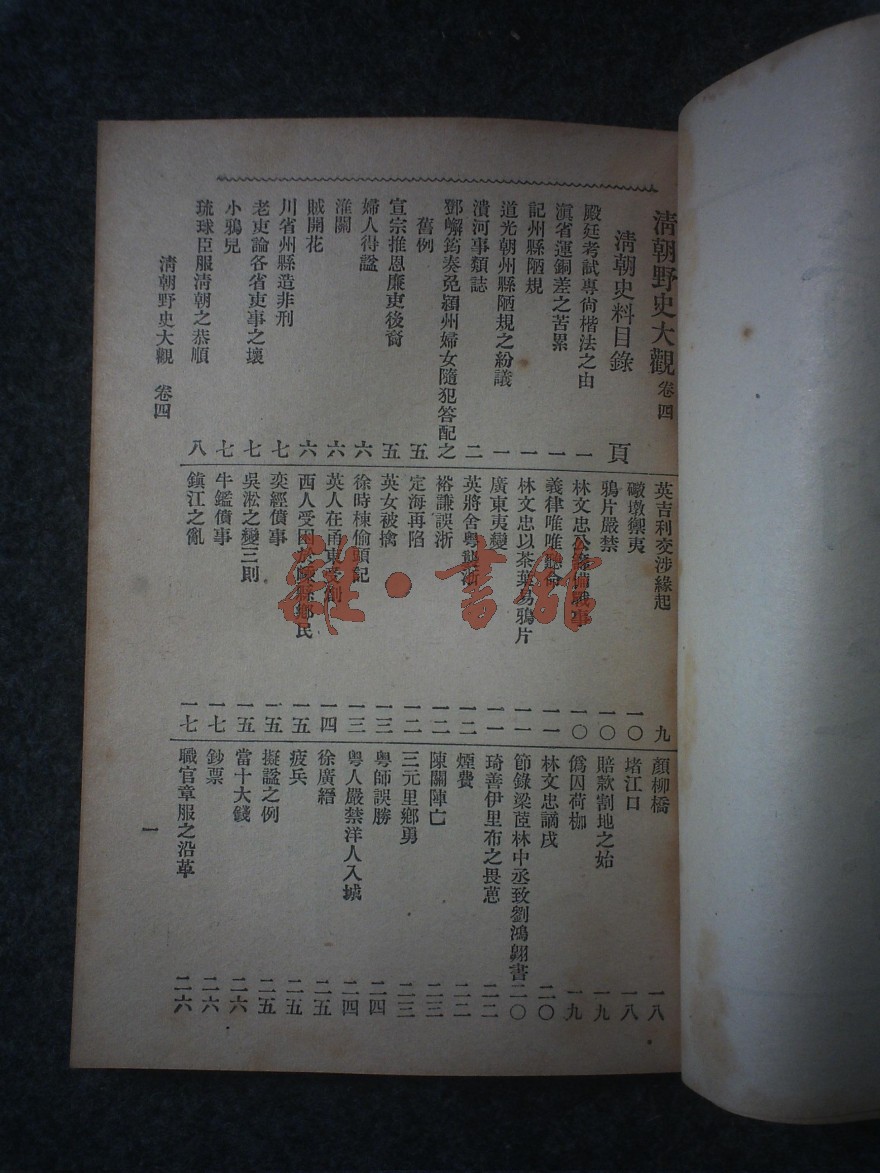 清朝野史大觀 卷四
清朝史料目錄 頁
殿廷考試專尙楷法之由 一
滇省運銅差之苦累 一
記州縣陋規 一
道光朝州縣陋規之紛議 一
潰河事類誌 二
鄧嶰筠奏免潁州婦女隨犯答配之
舊例 五
宣宗推恩廉吏後裔 五
婦人得諡 六
淮關 六
賊開花 六
川省州縣造非刑 七
老吏論各省吏事之壞 七
小鴉兒 七
琉球臣服清朝之恭順 八
英吉利交涉緣起 九
礮墩禦夷 一〇
鴉片嚴禁 一〇
林文忠公籌備戰事 一〇
義律唯唯聽命 一一
林文忠以茶葉易鴉片 一一
廣東夷變 一一
英將舍粵襲浙 一二
裕謙誤浙 一二
定海再陷 一二
英女被擒 一三
徐時棟偷頭記 一三
英人在甬東受創 一四
西人受困於鄉民 一五
奕經僨事 一五
吳淞之變三則 一五
牛鑑僨事 一七
鎮江之亂 一七
顏柳橋 一八
堵江口 一八
賠款割地之始 一九
僞囚荷枷 一九
林文忠謫戌 二〇
節錄梁茝林中丞致劉鴻翺書 二〇
琦善伊里布之畏葸 二二
煙費 二二
陳關陣亡 二三
三元里鄉勇 二三
粵師誤勝 二四
粵人嚴禁洋人入城 二四
徐廣縉 二五
疲兵 二五
擬諡之例 二五
當十大錢 二六
鈔票 二六
職官章服之沿革 二六
清朝野史大觀 卷四 一
雜·書館